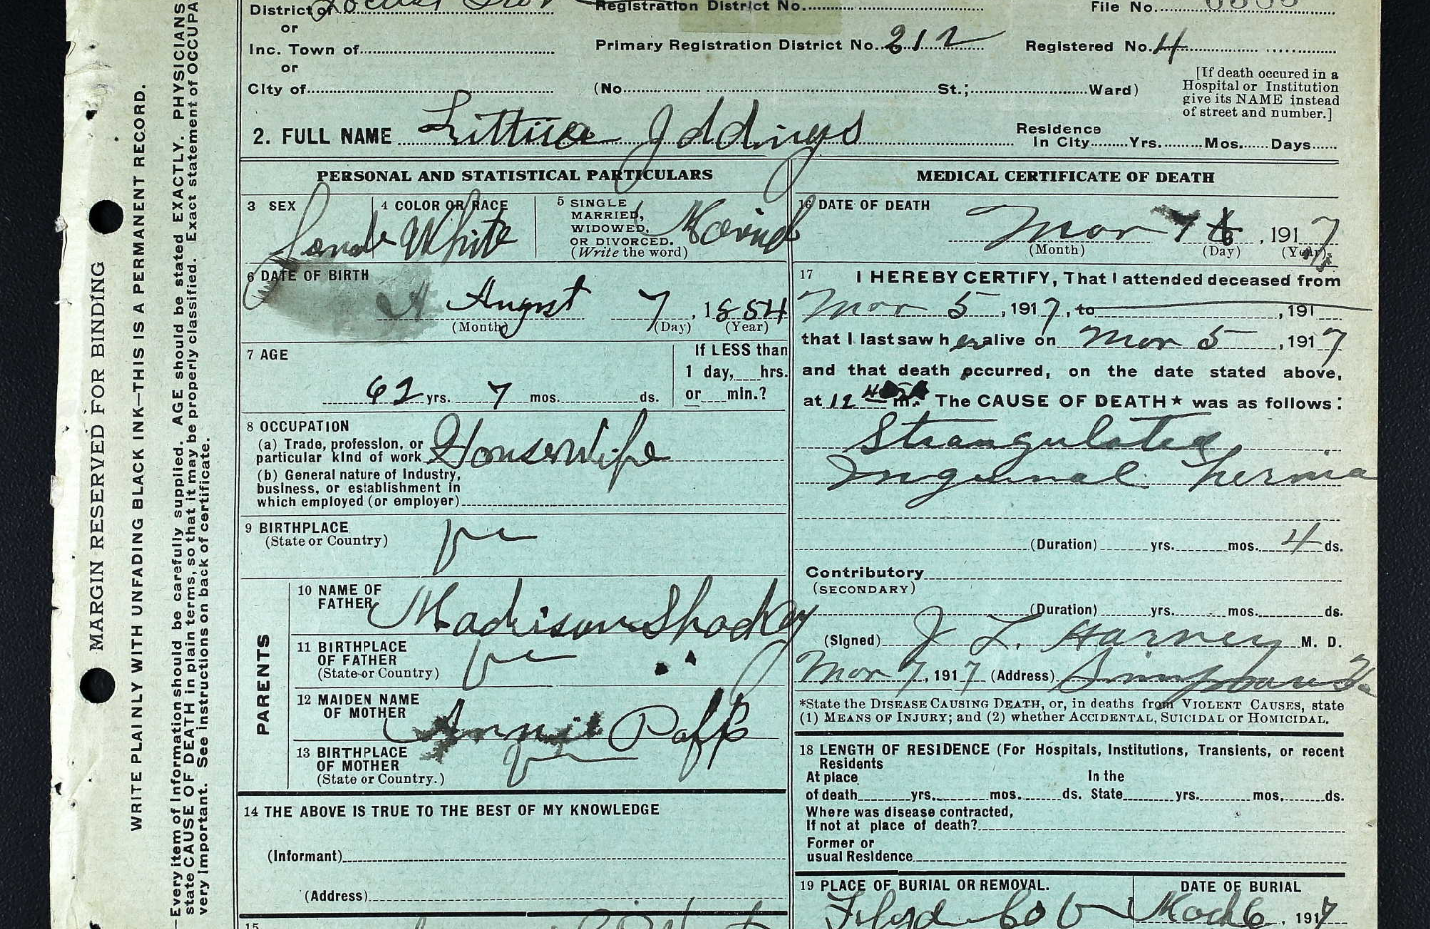 District of Locust Grov Registration District No. File No.
or
Inc. Town of Primary Registration District No. 212 Registered No. 4
or
City of (No St.; Ward) [If death occured in a Hospital or Institution give its NAME instead of street and number.]
2. FULL NAME Littica Iddings Residence In City Yrs. Mos. Days
PERSONAL AND STATISTICAL PARTICULARS
3 SEX 4 COLOR OR RACE White 5 SINGLE MARRIED, WIDOWED, OR DIVORCED. (Write the word)
6 DATE OF BIRTH
August 7, 1854
(Month) (Day) (Year)
7 AGE If LESS than
1 day, hrs.
62 yrs. 7 mos. ds. or min.?
8 OCCUPATION
(a) Trade, profession, or
particular kind of work Housewife
(b) General nature of Industry,
business, or establishment in
which employed (or employer)
9 BIRTHPLACE
(State or Country) Va
PARENTS
10 NAME OF
FATHER Madison Shockey
11 BIRTHPLACE
OF FATHER
(State or Country) Va
12 MAIDEN NAME
OF MOTHER Annie Poff
13 BIRTHPLACE
OF MOTHER
(State or Country.) Va
14 THE ABOVE IS TRUE TO THE BEST OF MY KNOWLEDGE
(Informant)
(Address)
15
MEDICAL CERTIFICATE OF DEATH
16 DATE OF DEATH
Mar 6, 1917
(Month) (Day) (Year)
17 I HEREBY CERTIFY, That I attended deceased from
Mar 5, 1917, to , 191
that I last saw her alive on Mar 5, 1917
and that death occurred, on the date stated above,
at 12 m. The CAUSE OF DEATH* was as follows:
Strangulated
Inguinal hernia
(Duration) yrs. mos. 4 ds.
Contributory
(SECONDARY)
(Duration) yrs. mos. ds.
(Signed) J L. Harvey M. D.
Mar 7, 1917 (Address) Simpsons Va
*State the DISEASE CAUSING DEATH, or, in deaths from VIOLENT CAUSES, state
(1) MEANS OF INJURY; and (2) whether ACCIDENTAL, SUICIDAL or HOMICIDAL.
18 LENGTH OF RESIDENCE (For Hospitals, Institutions, Transients, or recent
Residents
At place In the
of death yrs. mos. ds. State yrs. mos. ds.
Where was disease contracted,
If not at place of death?
Former or
usual Residence
19 PLACE OF BURIAL OR REMOVAL. DATE OF BURIAL
Floyd Co 6, 1917
MARGIN RESERVED FOR BINDING
WRITE PLAINLY WITH UNFADING BLACK INK—THIS IS A PERMANENT RECORD.
Every item of information should be carefully supplied. AGE should be stated EXACTLY. PHYSICIANS
state CAUSE OF DEATH in plain terms, so that it may be properly classified. Exact statement of OCCUPA
very important. See instructions on back of certificate.